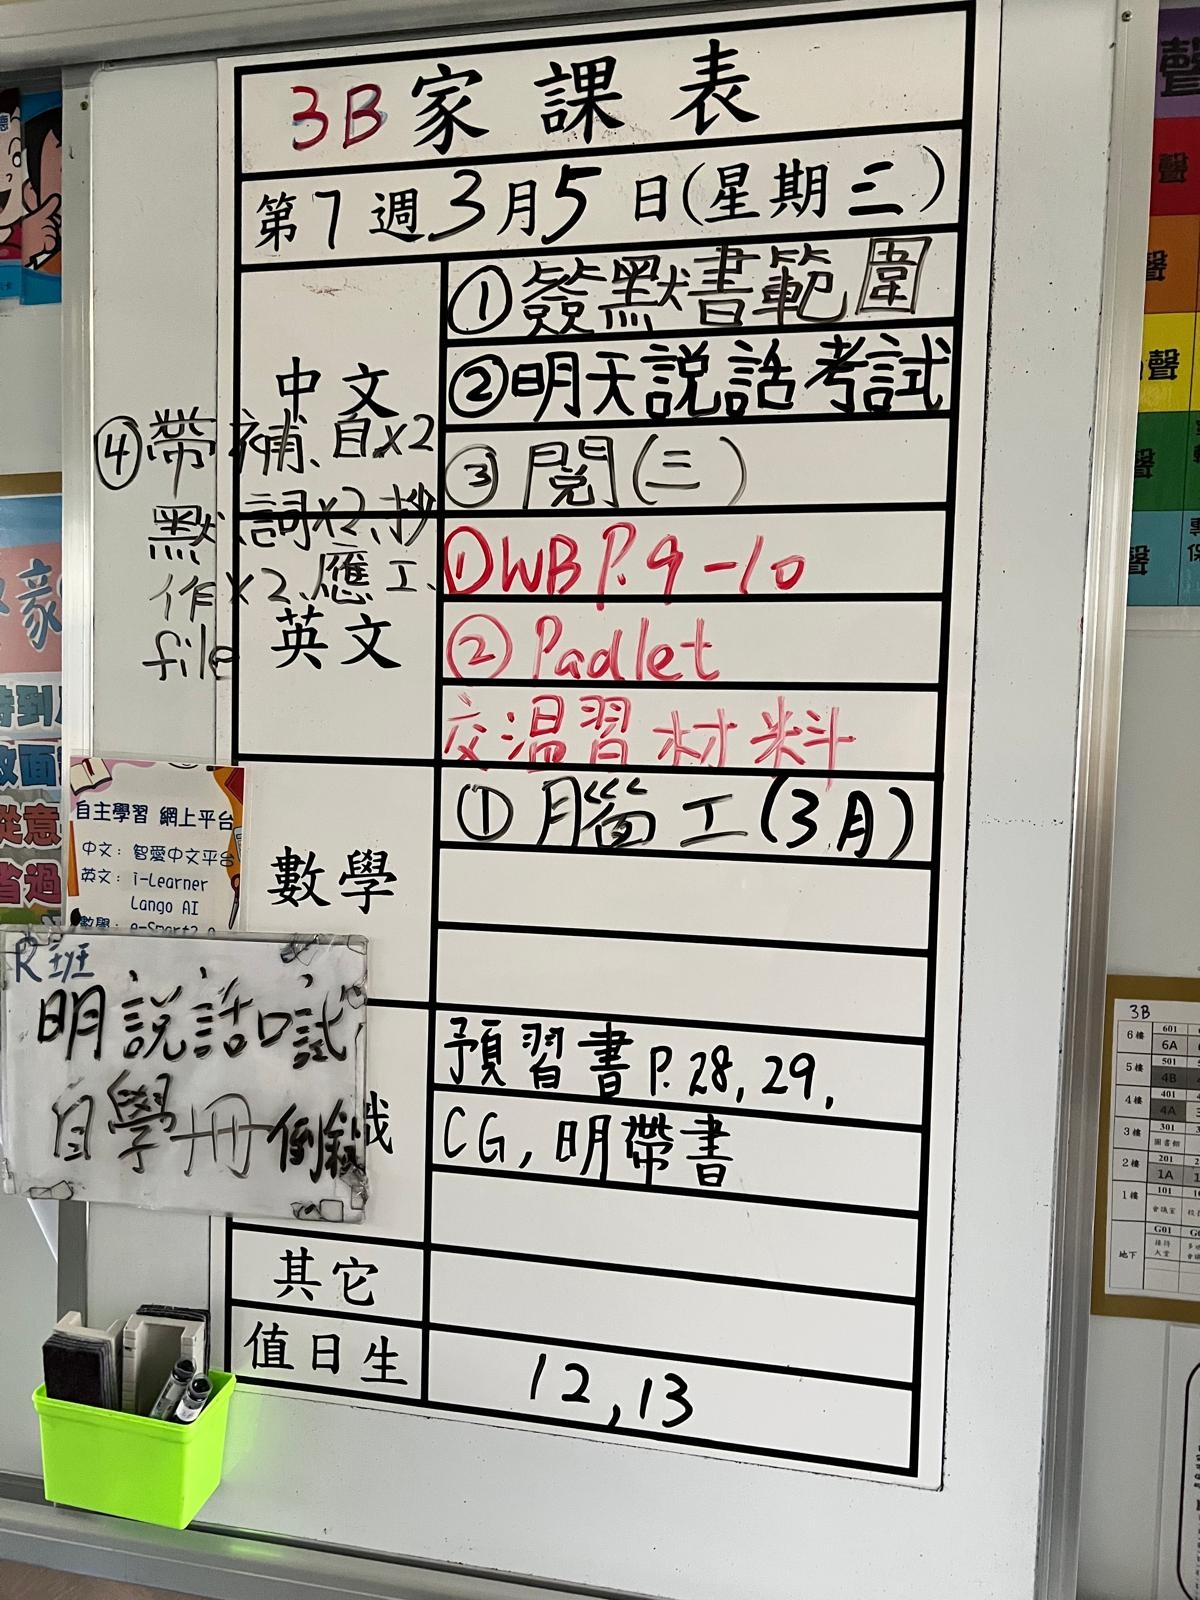 3B 家課表
第7週3月5日(星期三)
中文
①簽默書範圍
②明天説話考試
③閱(三)
④帶補、自x2
默、詞x2、抄
作x2、應工、
file
英文
①WB P.9-10
②Padlet
交温習材料
數學
①腦工(3月)
預習書P.28,29,
CG,明帶書
其它
值日生
12,13
自主學習 網上平台
中文：智愛中文平台
英文：i-Learner
Lango AI
數學：e-Smart2.0
R班
明説話口試
自學冊
3B
6樓
601
6A
5樓
501
4B
4樓
401
4A
3樓
301
圖書館
2樓
201
1A
1樓
101
會議室
地下
G01
接待
大堂
聲
聲
聲
聲
聲
聲